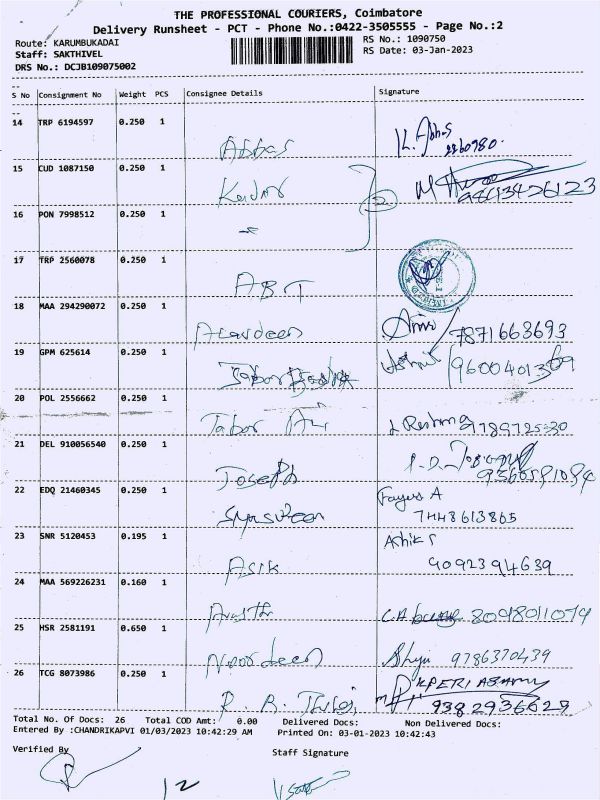 THE PROFESSIONAL COURIERS, Coimbatore
Delivery Runsheet - PCT - Phone No.:0422-3505555 - Page No.:2
Route: KARUMBUKADAI
RS No.: 1090750
Staff: SAKTHIVEL
RS Date: 03-Jan-2023
DRS No.: DCJB109075002
S No Consignment No Weight PCS Consignee Details Signature
14 TRP 6194597 0.250 1
Abbas
15 CUD 1087150 0.250 1
Kadar
16 PON 7998512 0.250 1
17 TRP 2560078 0.250 1
A.B.T
18 MAA 294290072 0.250 1
7871663693
19 GPM 625614 0.250 1
20 POL 2556662 0.250 1
21 DEL 910056540 0.250 1
Joseph
22 EDQ 21460345 0.250 1
Fayus A
7448613865
23 SNR 5120453 0.195 1
Ashik S
Asik
9092394639
24 MAA 569226231 0.160 1
8098011079
25 HSR 2581191 0.650 1
Noordeen
9786370439
26 TCG 8073986 0.250 1
9382936629
Total No. Of Docs: 26 Total COD Amt: 0.00 Delivered Docs: Non Delivered Docs:
Entered By :CHANDRIKAPVI 01/03/2023 10:42:29 AM Printed On: 03-01-2023 10:42:43
Verified By
Staff Signature
12